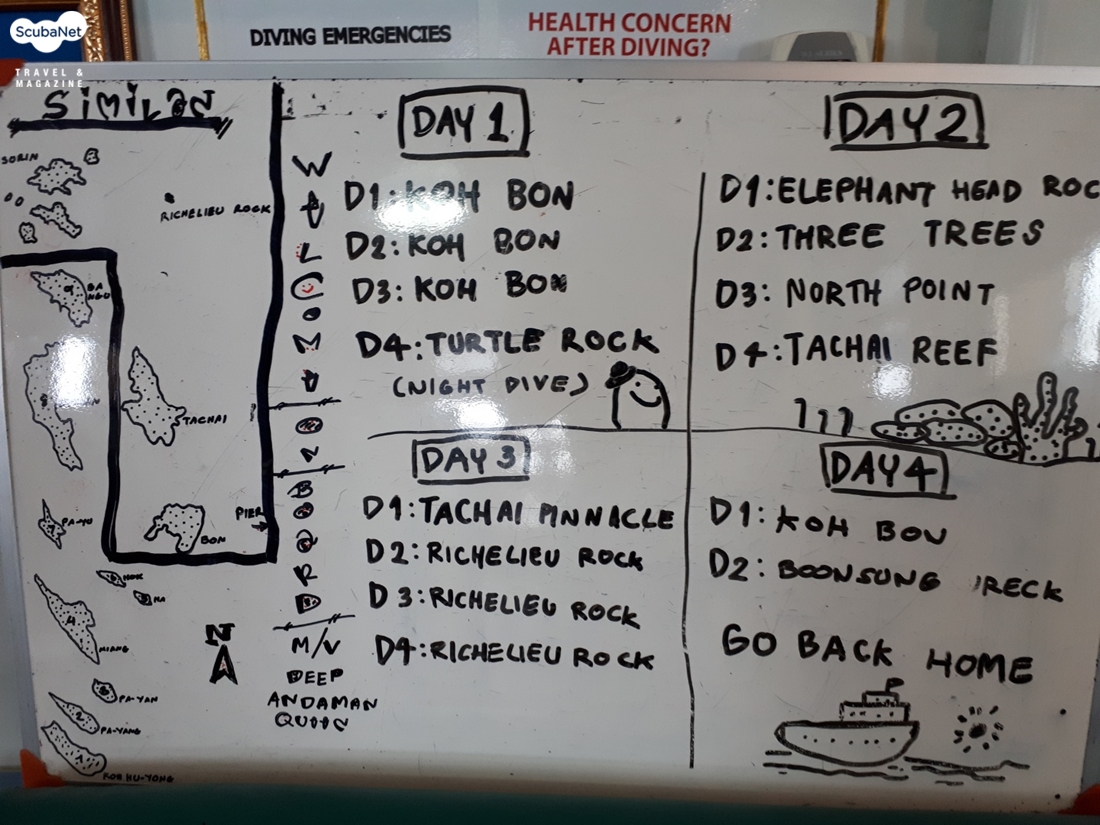 ScubaNet
TRAVEL &
MAGAZINE
DIVING EMERGENCIES
HEALTH CONCERN
AFTER DIVING?
SiMiLaN
SORIN
RICHELIEU ROCK
BA
NGU
9
8
TACHAI
PIER
BON
PA-YU
HOK
HA
4
MIANG
3
PA-YAN
2
PA-YANG
1
KOH HU-YONG
N
WELCOME
ON
BOARD
M/V
DEEP
ANDAMAN
QUEEN
DAY 1
D1: KOH BON
D2: KOH BON
D3: KOH BON
D4: TURTLE ROCK
(NIGHT DIVE)
DAY 2
D1: ELEPHANT HEAD ROC
D2: THREE TREES
D3: NORTH POINT
D4: TACHAI REEF
DAY 3
D1: TACHAI PINNACLE
D2: RICHELIEU ROCK
D3: RICHELIEU ROCK
D4: RICHELIEU ROCK
DAY 4
D1: KOH BON
D2: BOONSUNG WRECK
GO BACK HOME